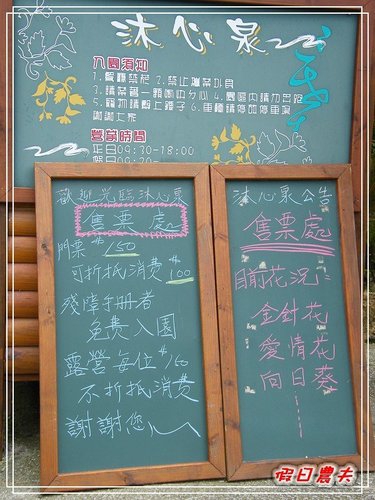 沐心泉
入園須知
1.餐廳禁菸 2.禁止攜菜外食
3.請菜蓄一顆
4.園區內請勿
5.寵物請繫上鍊子 6.車輛請停放停車場
謝謝合作
營業時間
平日09:30-18:00
假日09:30
歡迎光臨沐心泉
售票處
門票 $150
可折抵消費 $100
殘障手冊者
免費入園
露營每位 $160
不折抵消費
謝謝您
沐心泉公告
售票處
目前花況:
金針花
愛情花
向日葵
假日農夫